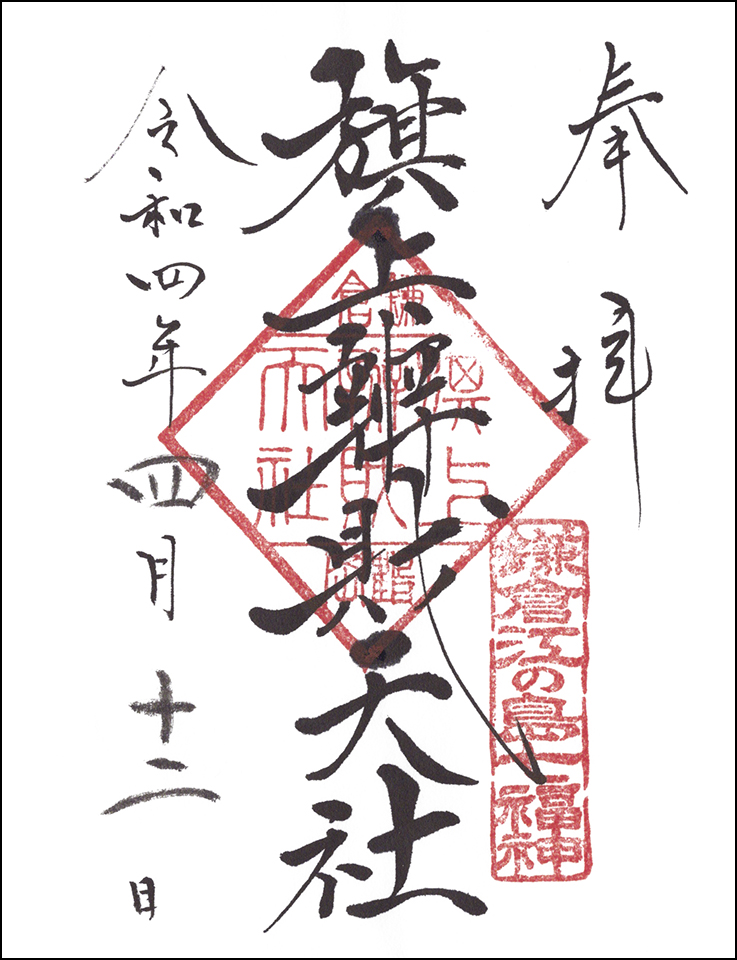 奉拝
鎌倉江の島七福神
旗上辨財天社
鎌倉
旗上
辨財
天社
令和四年四月十二日